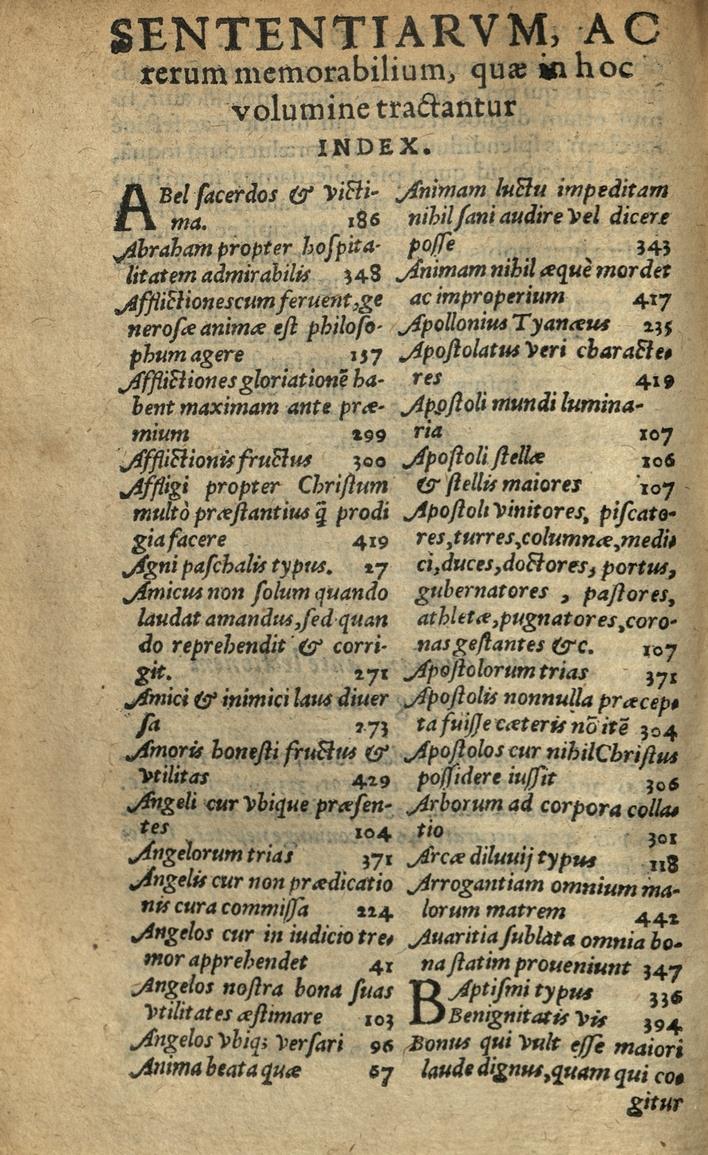 SENTENTIARVM, AC
rerum memorabilium, quæ in hoc
volumine tractantur
INDEX.
ABel ſacerdos & victi-
ma. 186
Abraham propter hoſpita-
litatem admirabilis 348
Afflictionescum feruent,ge
neroſæ animæ eſt philoſo-
phum agere 157
Afflictiones gloriationē ha-
bent maximam ante præ-
mium 299
Afflictionis fructus 300
Affligi propter Chriſtum
multò præſtantius q̃ prodi
gia facere 419
Agni paſchalis typus. 27
Amicus non ſolum quando
laudat amandus,ſed quan
do reprehendit & corri-
git. 271
Amici & inimici laus diuer
ſa 273
Amoris honeſti fructus &
vtilitas 429
Angeli cur vbique præſen-
tes 104
Angelorum trias 371
Angelis cur non prædicatio
nis cura commiſſa 224
Angelos cur in iudicio tre-
mor apprehendet 41
Angelos noſtra bona ſuas
vtilitates æſtimare 103
Angelos vbiq; verſari 96
Anima beata quæ 67
Animam luctu impeditam
nihil ſani audire vel dicere
poſſe 343
Animam nihil æquè mordet
ac improperium 417
Apollonius Tyanæus 235
Apoſtolatus veri characte-
res 419
Apoſtoli mundi lumina-
ria 107
Apoſtoli ſtellæ 106
& ſtellis maiores 107
Apoſtoli vinitores, piſcato-
res,turres,columnæ,medi-
ci,duces,doctores, portus,
gubernatores , paſtores,
athletæ,pugnatores,coro-
nas geſtantes &c. 107
Apoſtolorum trias 371
Apoſtolis nonnulla præcep-
ta fuiſſe cæteris nō itē 304
Apoſtolos cur nihil Chriſtus
poſſidere iuſſit 306
Arborum ad corpora colla-
tio 301
Arcæ diluuij typus 118
Arrogantiam omnium ma-
lorum matrem 442
Auaritia ſublata omnia bo-
na ſtatim proueniunt 347
BAptiſmi typus 336
Benignitatis vis 394
Bonus qui vult eſſe maiori
laude dignus,quam qui co-
gitur